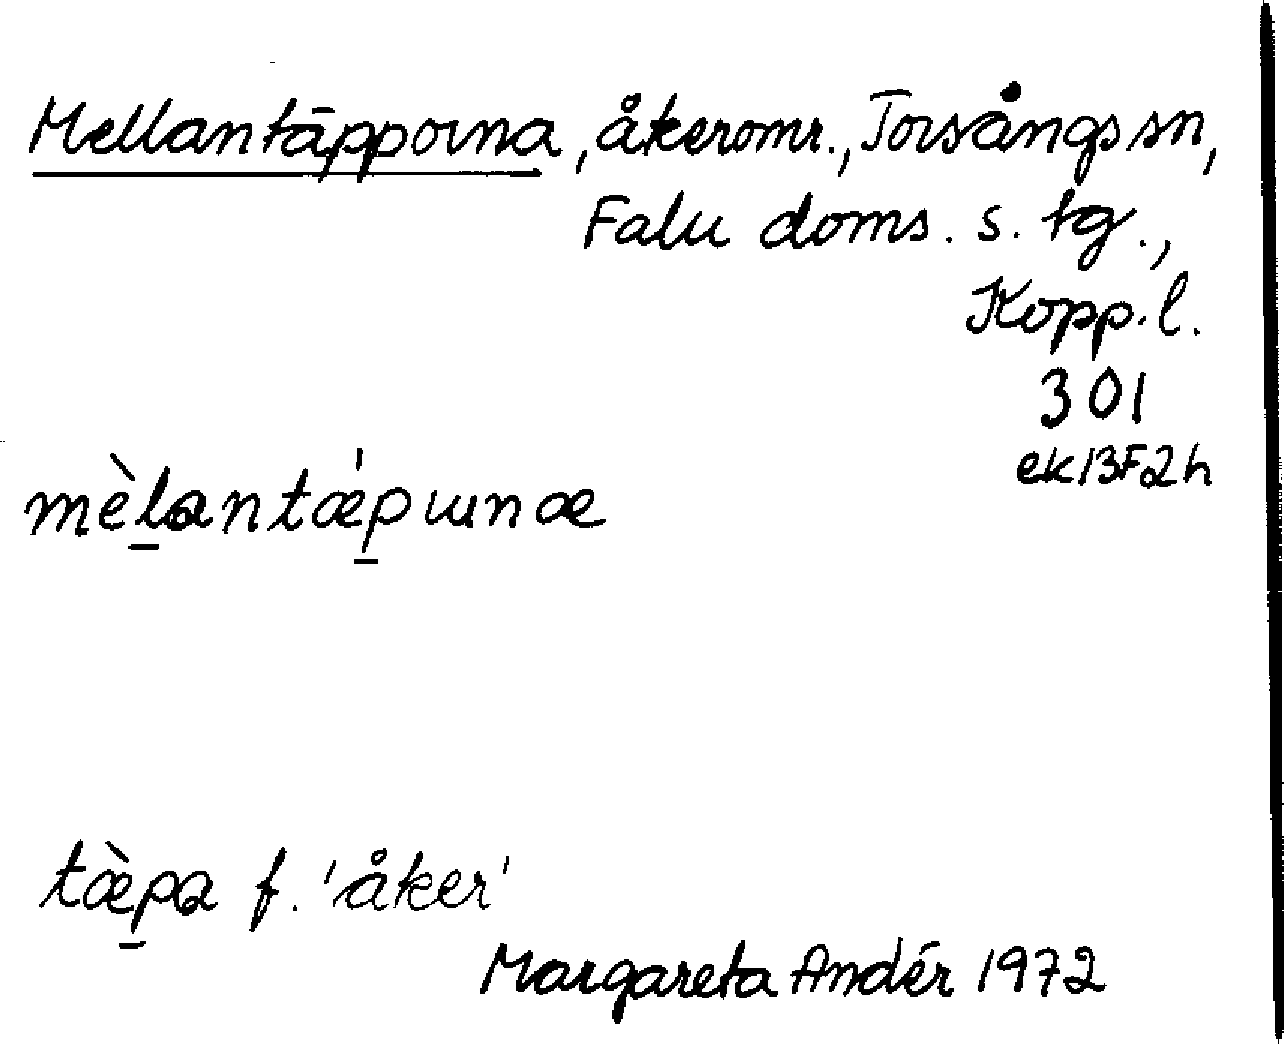 Mellantäpporna, åkeromr., Torsångs sn,
Falu doms. s. tg.,
Kopp. l.
301
ek13F2h
mèl̲antæ̍p̲ɯnæ
tæ̀p̲a f. 'åker'
Margareta Andér 1972